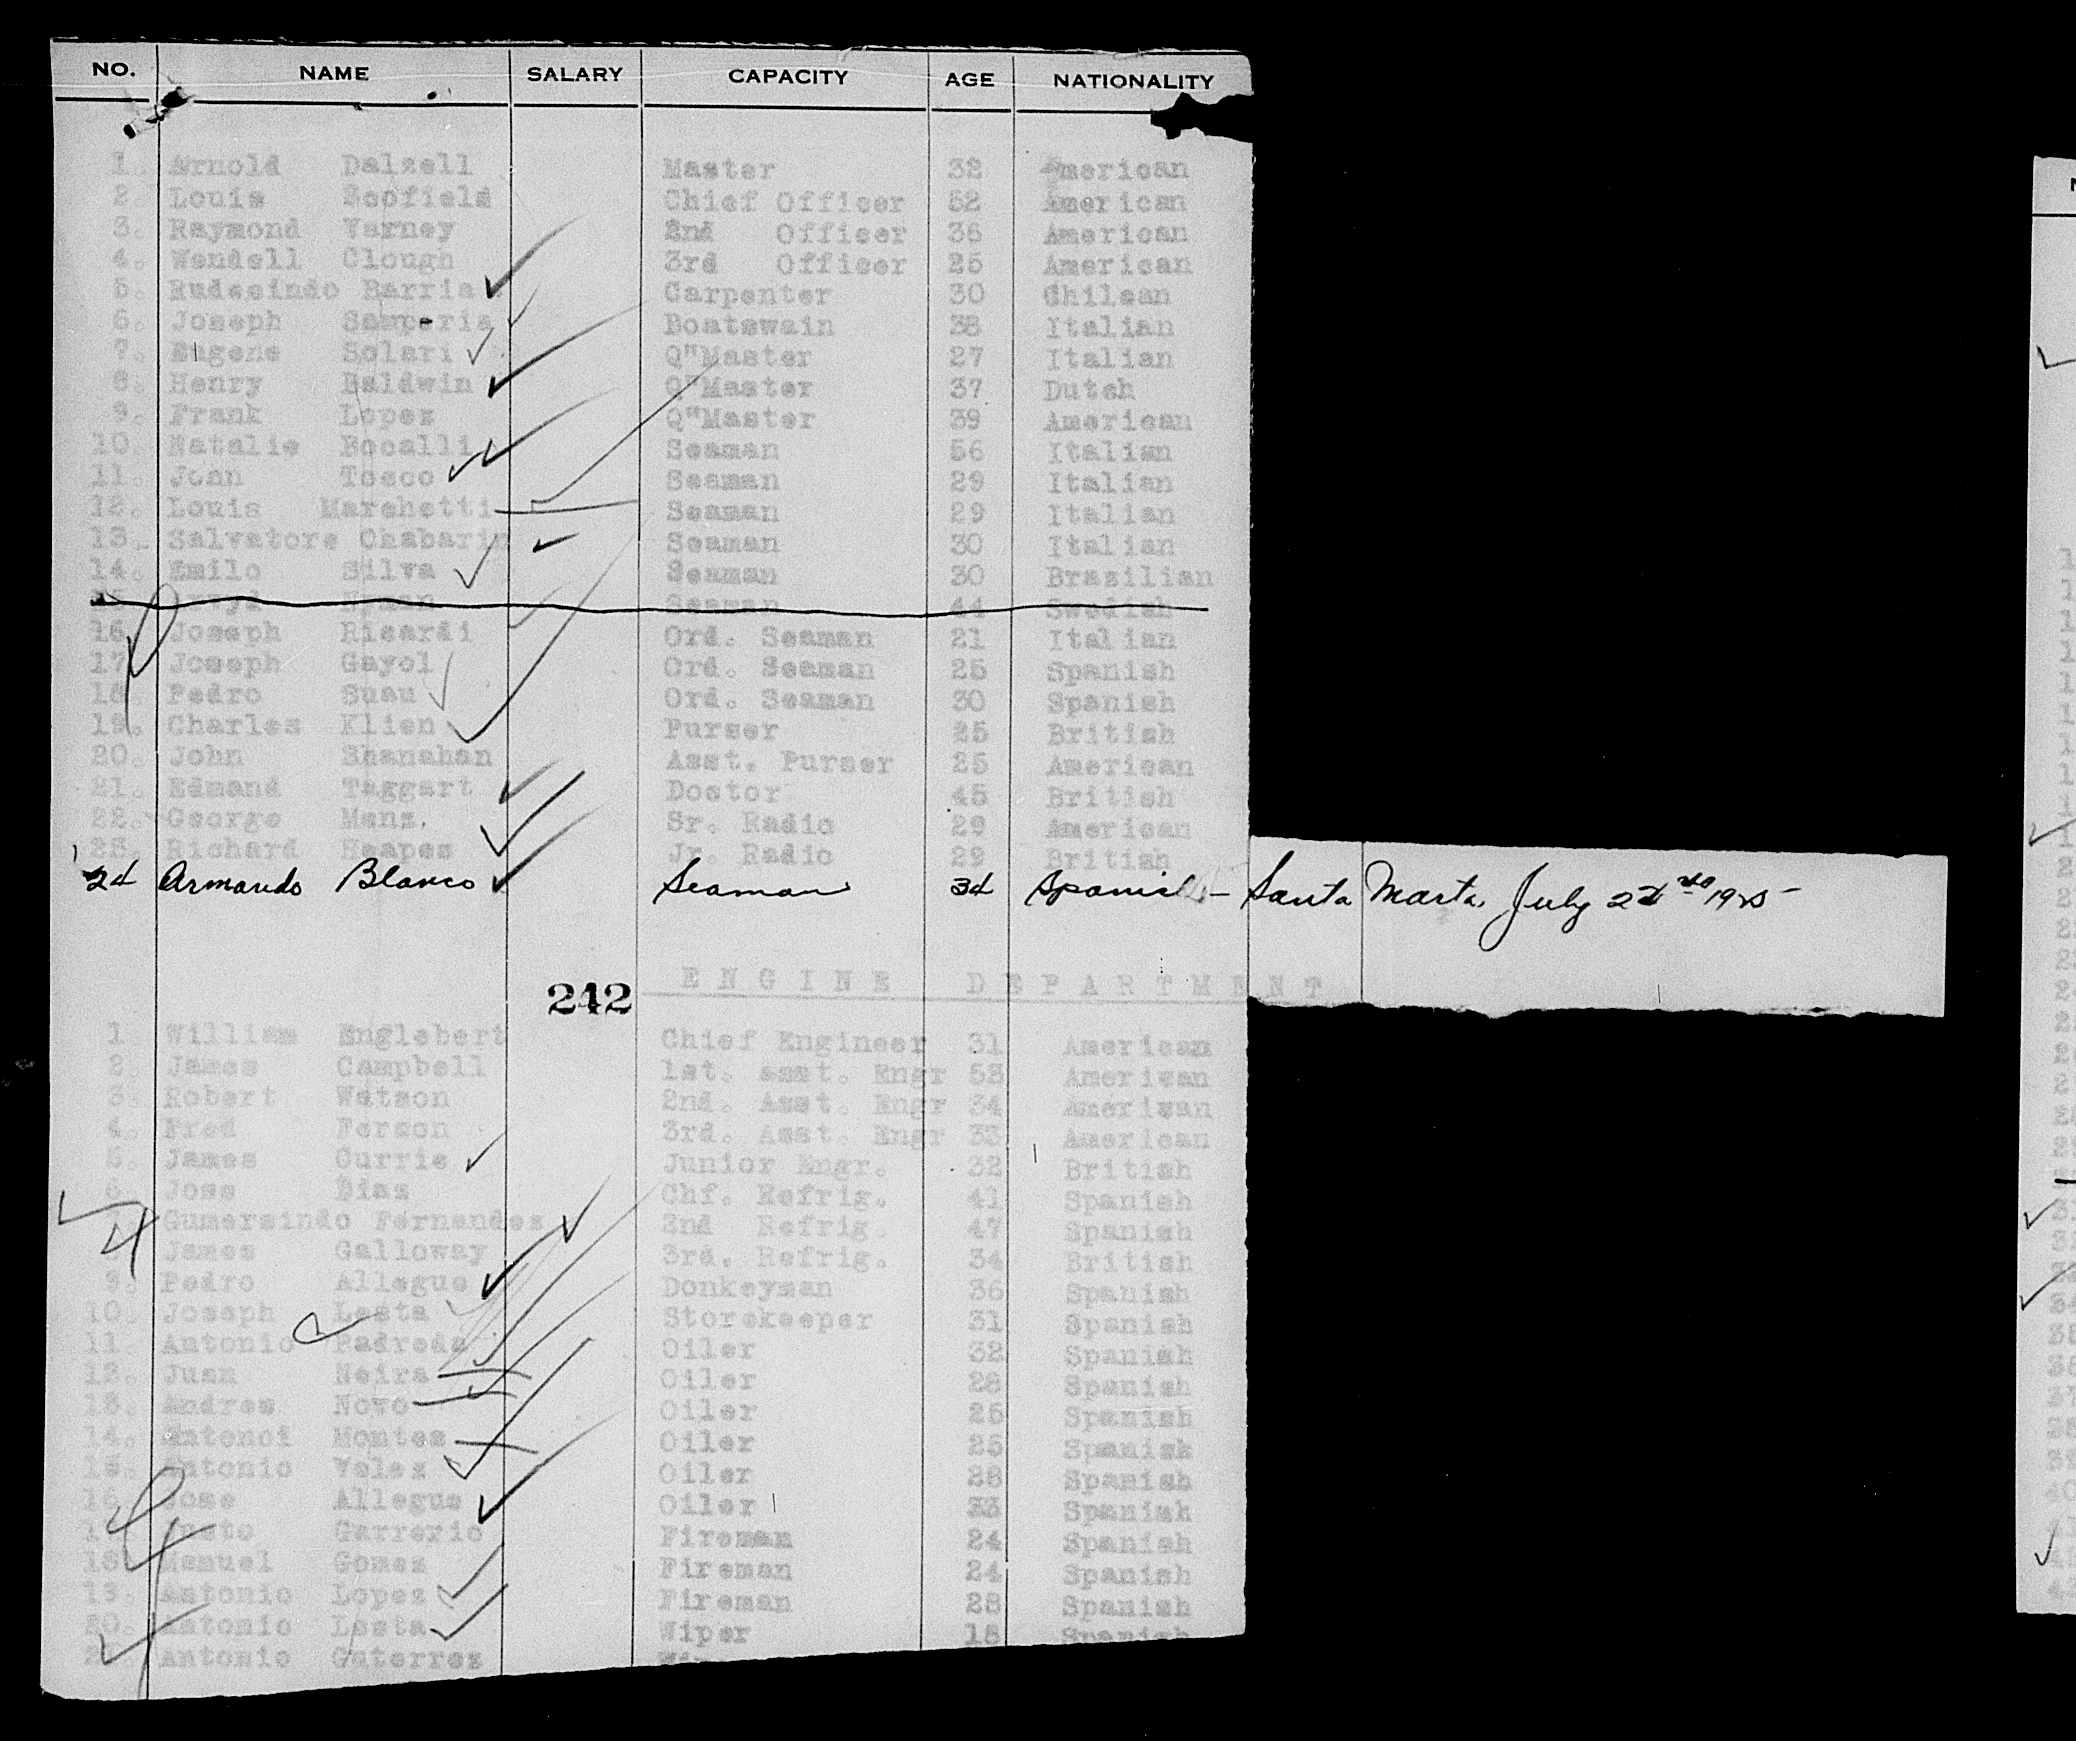 NO. NAME SALARY CAPACITY AGE NATIONALITY
1. Arnold Dalzell Master 32 American
2. Louis Scofield Chief Officer 52 American
3. Raymond Varney 2nd Officer 36 American
4. Wendell Clough 3rd Officer 25 American
5. Rudesindo Barria Carpenter 30 Chilean
6. Joseph Boatswain 38 Italian
7. Eugene Solari Q"Master 27 Italian
8. Henry Baldwin Q"Master 37 Dutch
9. Frank Lopez Q"Master 39 American
10. Natalie Bocalli Seaman 56 Italian
11. Joan Tosco Seaman 29 Italian
12. Louis Marchetti Seaman 29 Italian
13. Salvatore Seaman 30 Italian
14. Emilo Silva Seaman 30 Brasilian
Seaman 44 Swedish
16. Joseph Ricardi Ord. Seaman 21 Italian
17. Joseph Gayol Ord. Seaman 25 Spanish
18. Pedro Suau Ord. Seaman 30 Spanish
19. Charles Klien Purser 25 British
20. John Shanahan Asst. Purser 25 American
21. Edmand Taggart Doctor 45 British
22. George Menz. Sr. Radio 29 American
23. Richard Heapes Jr. Radio 29 British
24 Armando Blanco Seaman 34 Spanish - Santa Marta, July 22nd 1925 -
ENGINE DEPARTMENT
242
1 William Englebert Chief Engineer 31 American
2. James Campbell 1st. asst. Engr 53 American
3. Robert Watson 2nd. Asst. Engr 34 American
4. Fred Ferson 3rd. Asst. Engr 33 American
5. James Currie Junior Engr. 32 British
6. Jose Dias Chf. Refrig. 41 Spanish
Gumersindo Fernandes 2nd Refrig. 47 Spanish
James Galloway 3rd. Refrig. 34 British
9. Pedro Allegue Donkeyman 36 Spanish
10. Joseph Lesta Storekeeper 31 Spanish
11. Antonio Padreda Oiler 32 Spanish
12. Juan Neira Oiler 28 Spanish
13. Andres Novo Oiler 25 Spanish
14. Antonoi Montes Oiler 25 Spanish
15. Antonio Velez Oiler 28 Spanish
16. Jose Allegue Oiler 33 Spanish
17. Justo Garrerio Fireman 24 Spanish
18. Manuel Gomez Fireman 24 Spanish
19. Antonio Lopez Fireman 28 Spanish
20. Antonio Lesta Wiper 18 Spanish
21. Antonio Guterrez